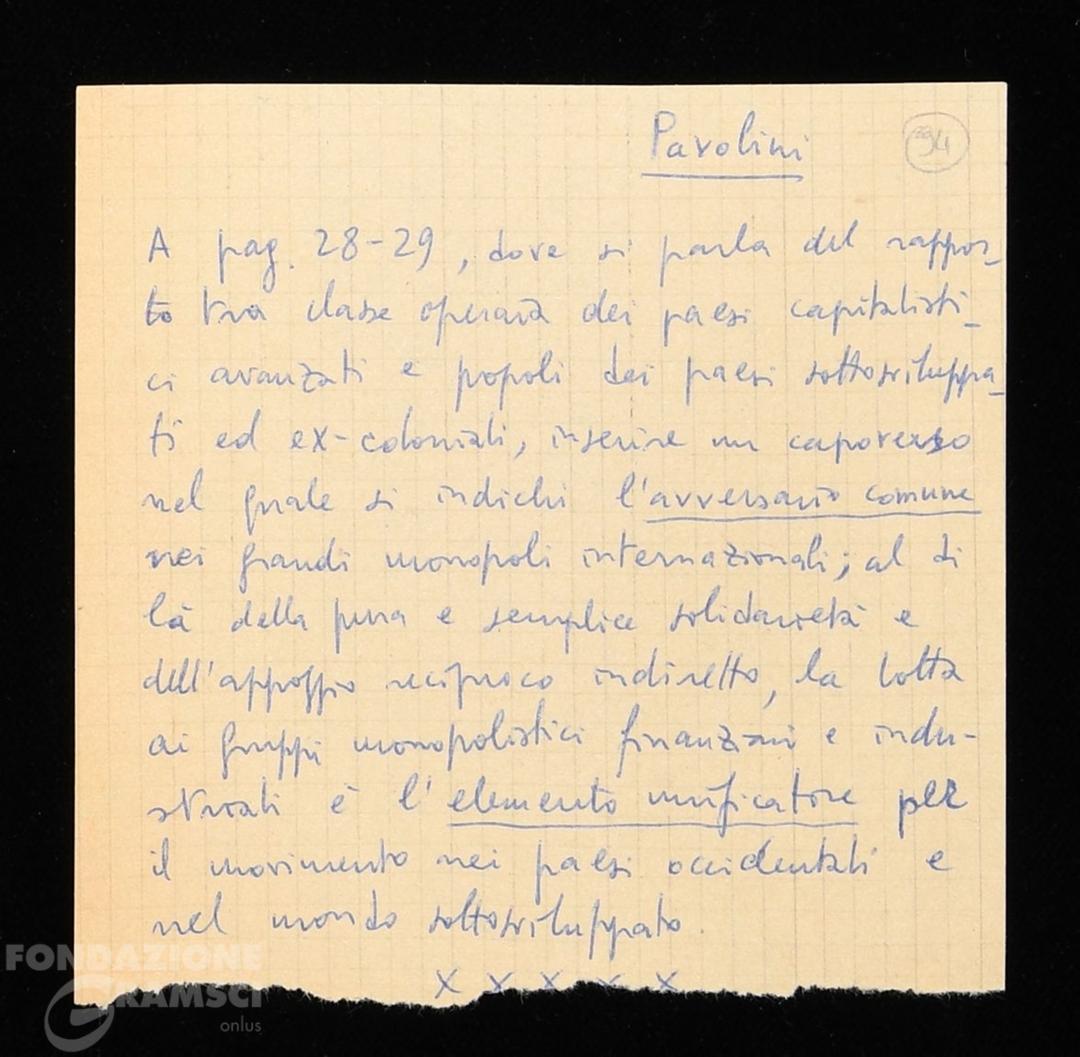 Pavolini
34
A pag. 28-29, dove si parla del rappor-
to tra classe operaia dei paesi capitalisti-
ci avanzati e popoli dei paesi sottosviluppa-
ti ed ex-coloniali, inserire un capoverso
nel quale si indichi l'avversario comune
nei grandi monopoli internazionali; al di
là della pura e semplice solidarietà e
dell'appoggio reciproco indiretto, la lotta
ai gruppi monopolistici finanziari e indu-
striali è l'elemento unificatore per
il movimento nei paesi occidentali e
nel mondo sottosviluppato.
X X X X X
FONDAZIONE
GRAMSCI
onlus